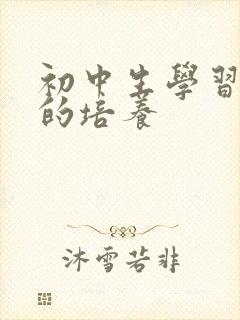 初中生學習
的培養
沐雪若非